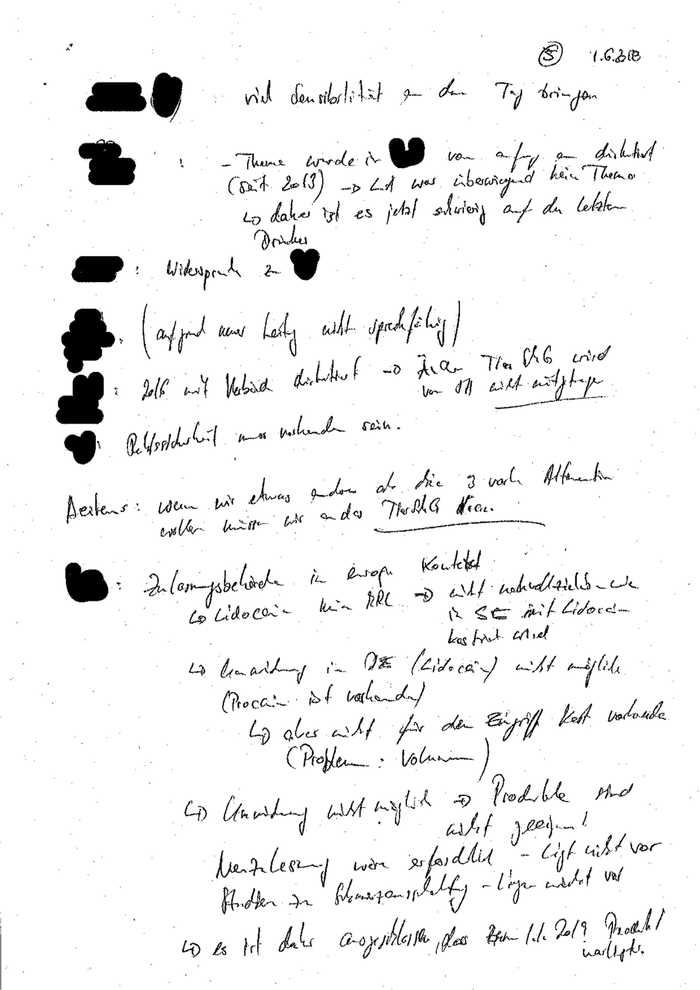 5 1.6.2018
viel Sensibilität an den Tag bringen
: - Thema wurde in von anfang an diskutiert
(seit 2013) → war überwiegend kein Thema
↳ daher ist es jetzt schwierig auf den letzten
Drücker
: Widerspruch zu
: (aufgrund neuer nicht sprachfähig)
: 2016 mit diskutiert → TierSchG wird
von nicht mitgetragen
: Rechtssicherheit muss vorhanden sein.
: wenn wir etwas anderes als die 3 Alternativen
wollen müssen wir an das TierSchG
: Zulassungsbehörde in europ Kontext
↳ Lidocain kein MRL → nicht nachvollziehb. wie
in SE mit Lidocain
kastriert wird
↳ Umwidmung in DE (Lidocain) nicht möglich
(Procain ist vorhanden)
↳ aber nicht für den Eingriff Kast vorhanden
(Problem: Volumen)
↳ Umwidmung nicht möglich → Produkte sind
nicht geeignet
Neuzulassung wäre erforderlich - liegt nicht vor
Studien zu Schmerzausschaltung - liegen nicht vor
↳ es ist daher ausgeschlossen, dass zum 1.1.2019 Produkt